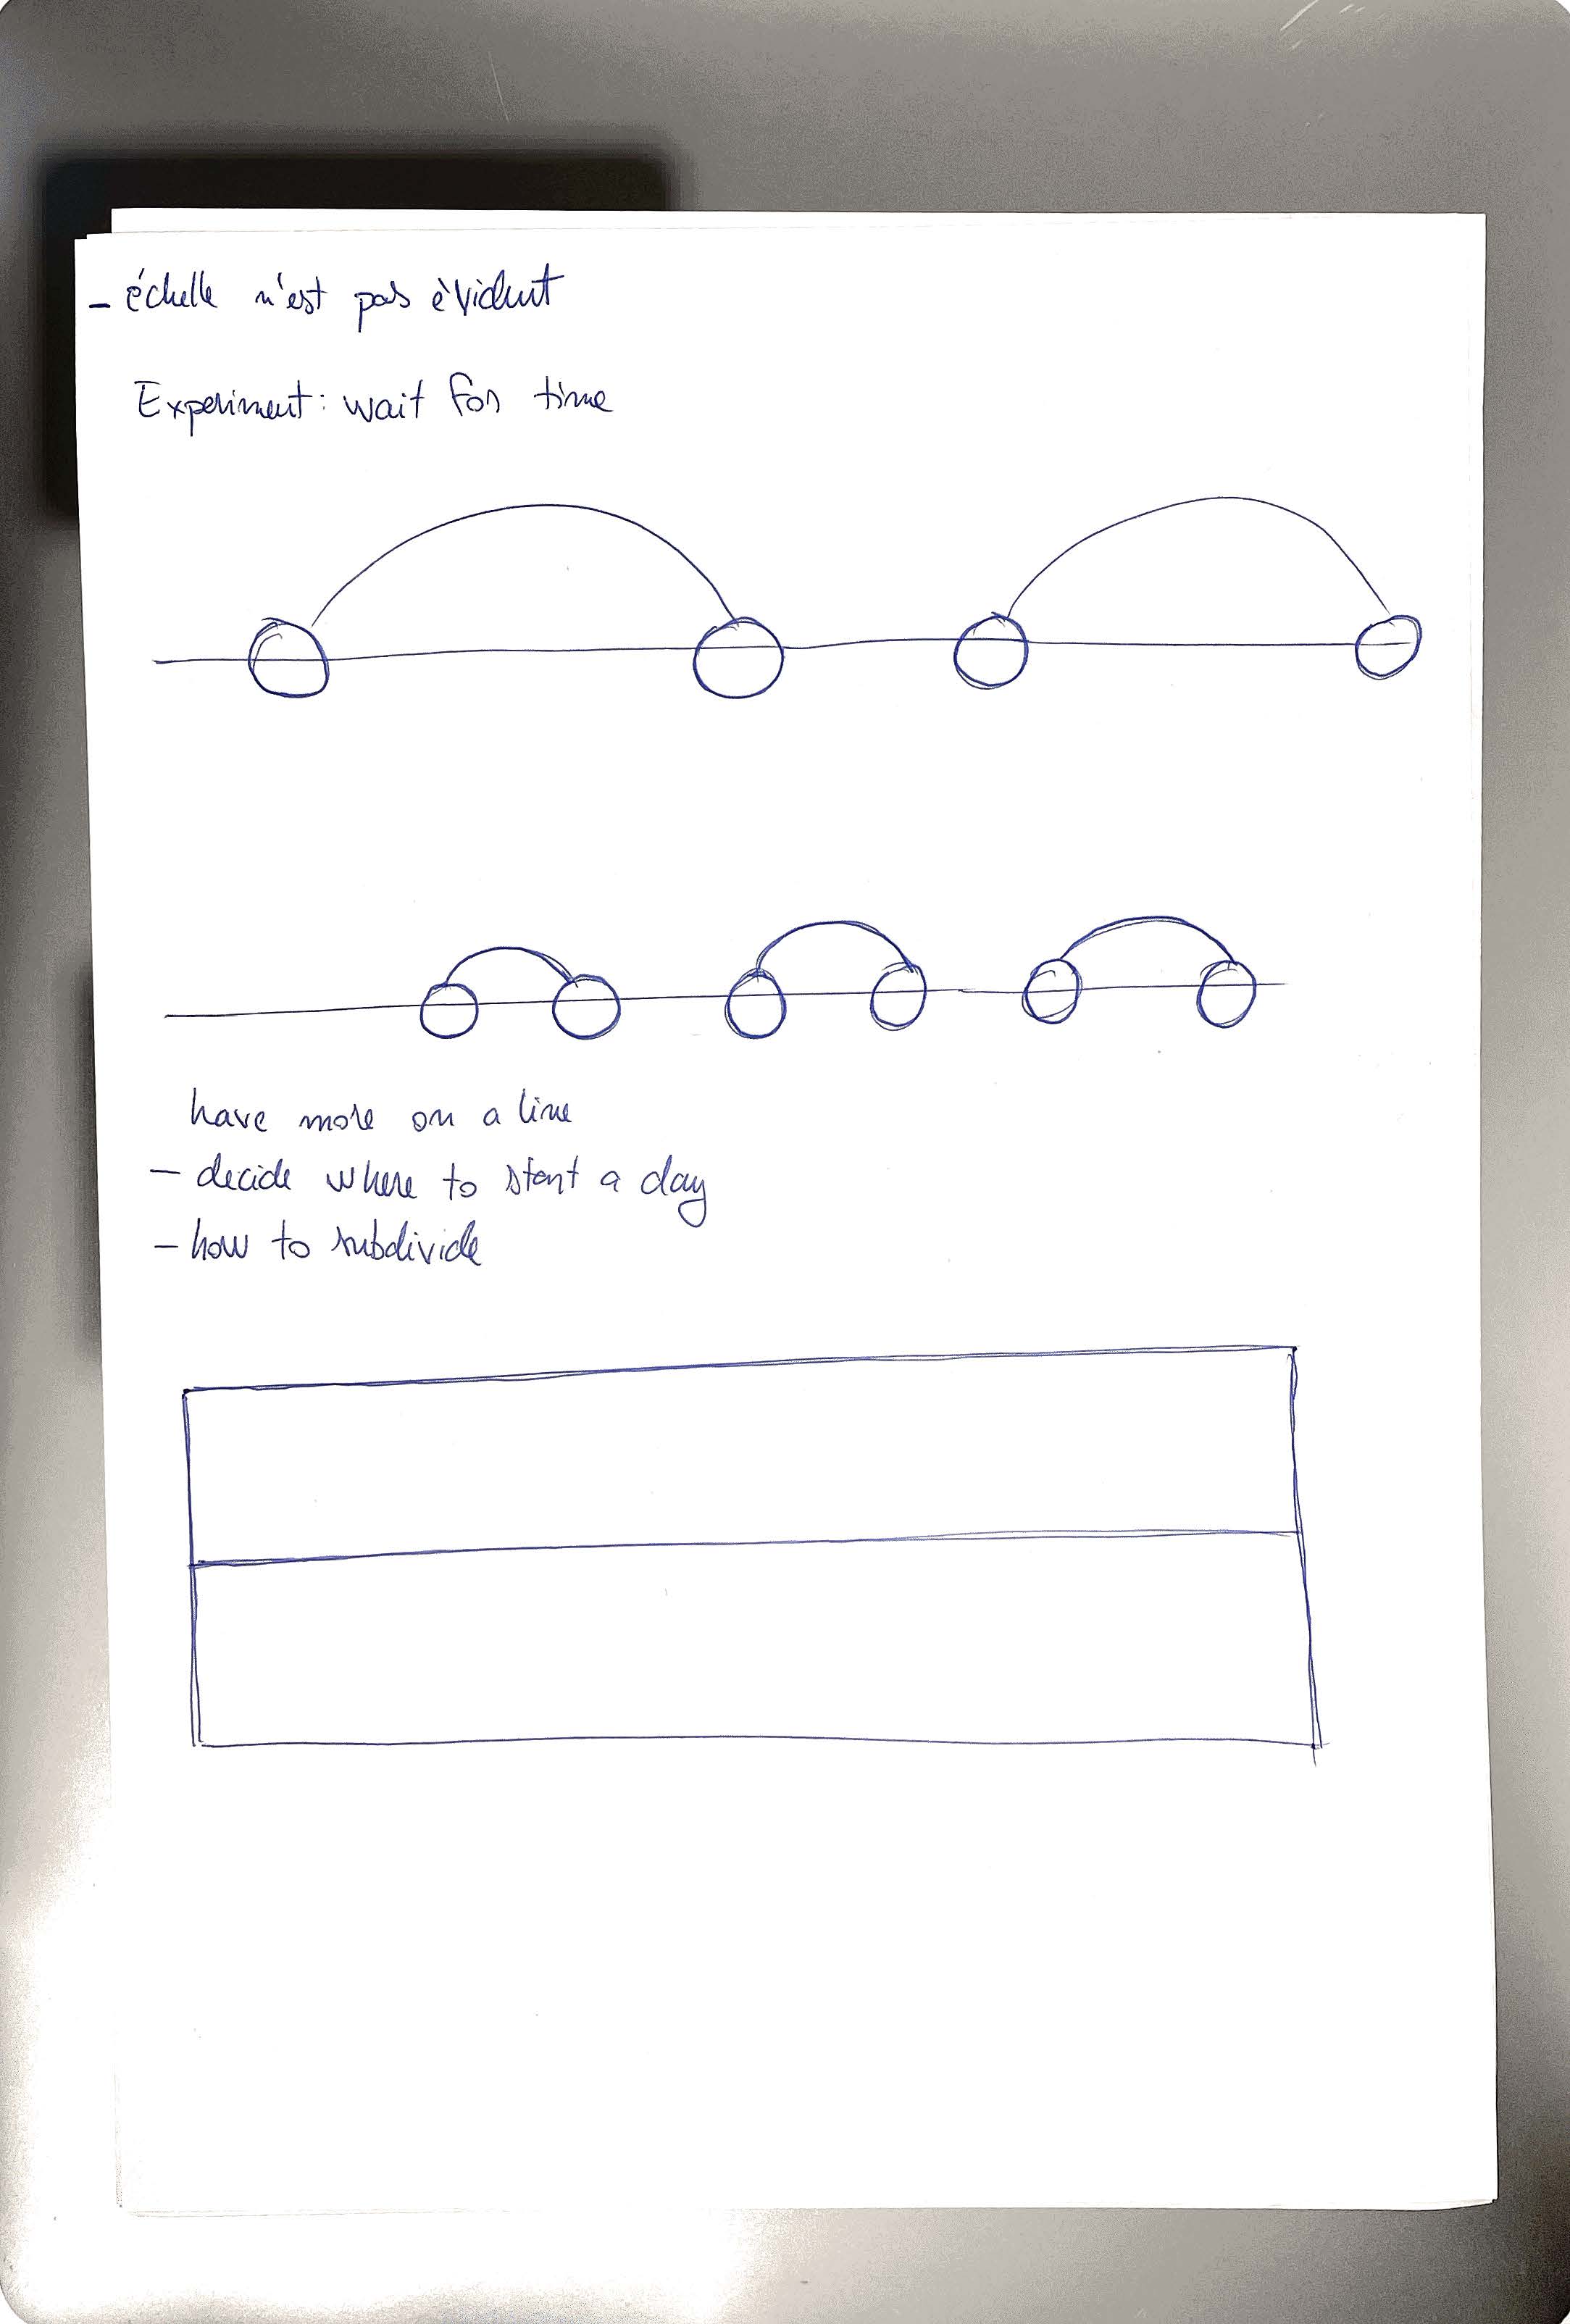 - échelle n'est pas èvident
Experiment: wait for time
have more on a line
- decide where to start a day
- how to subdivide